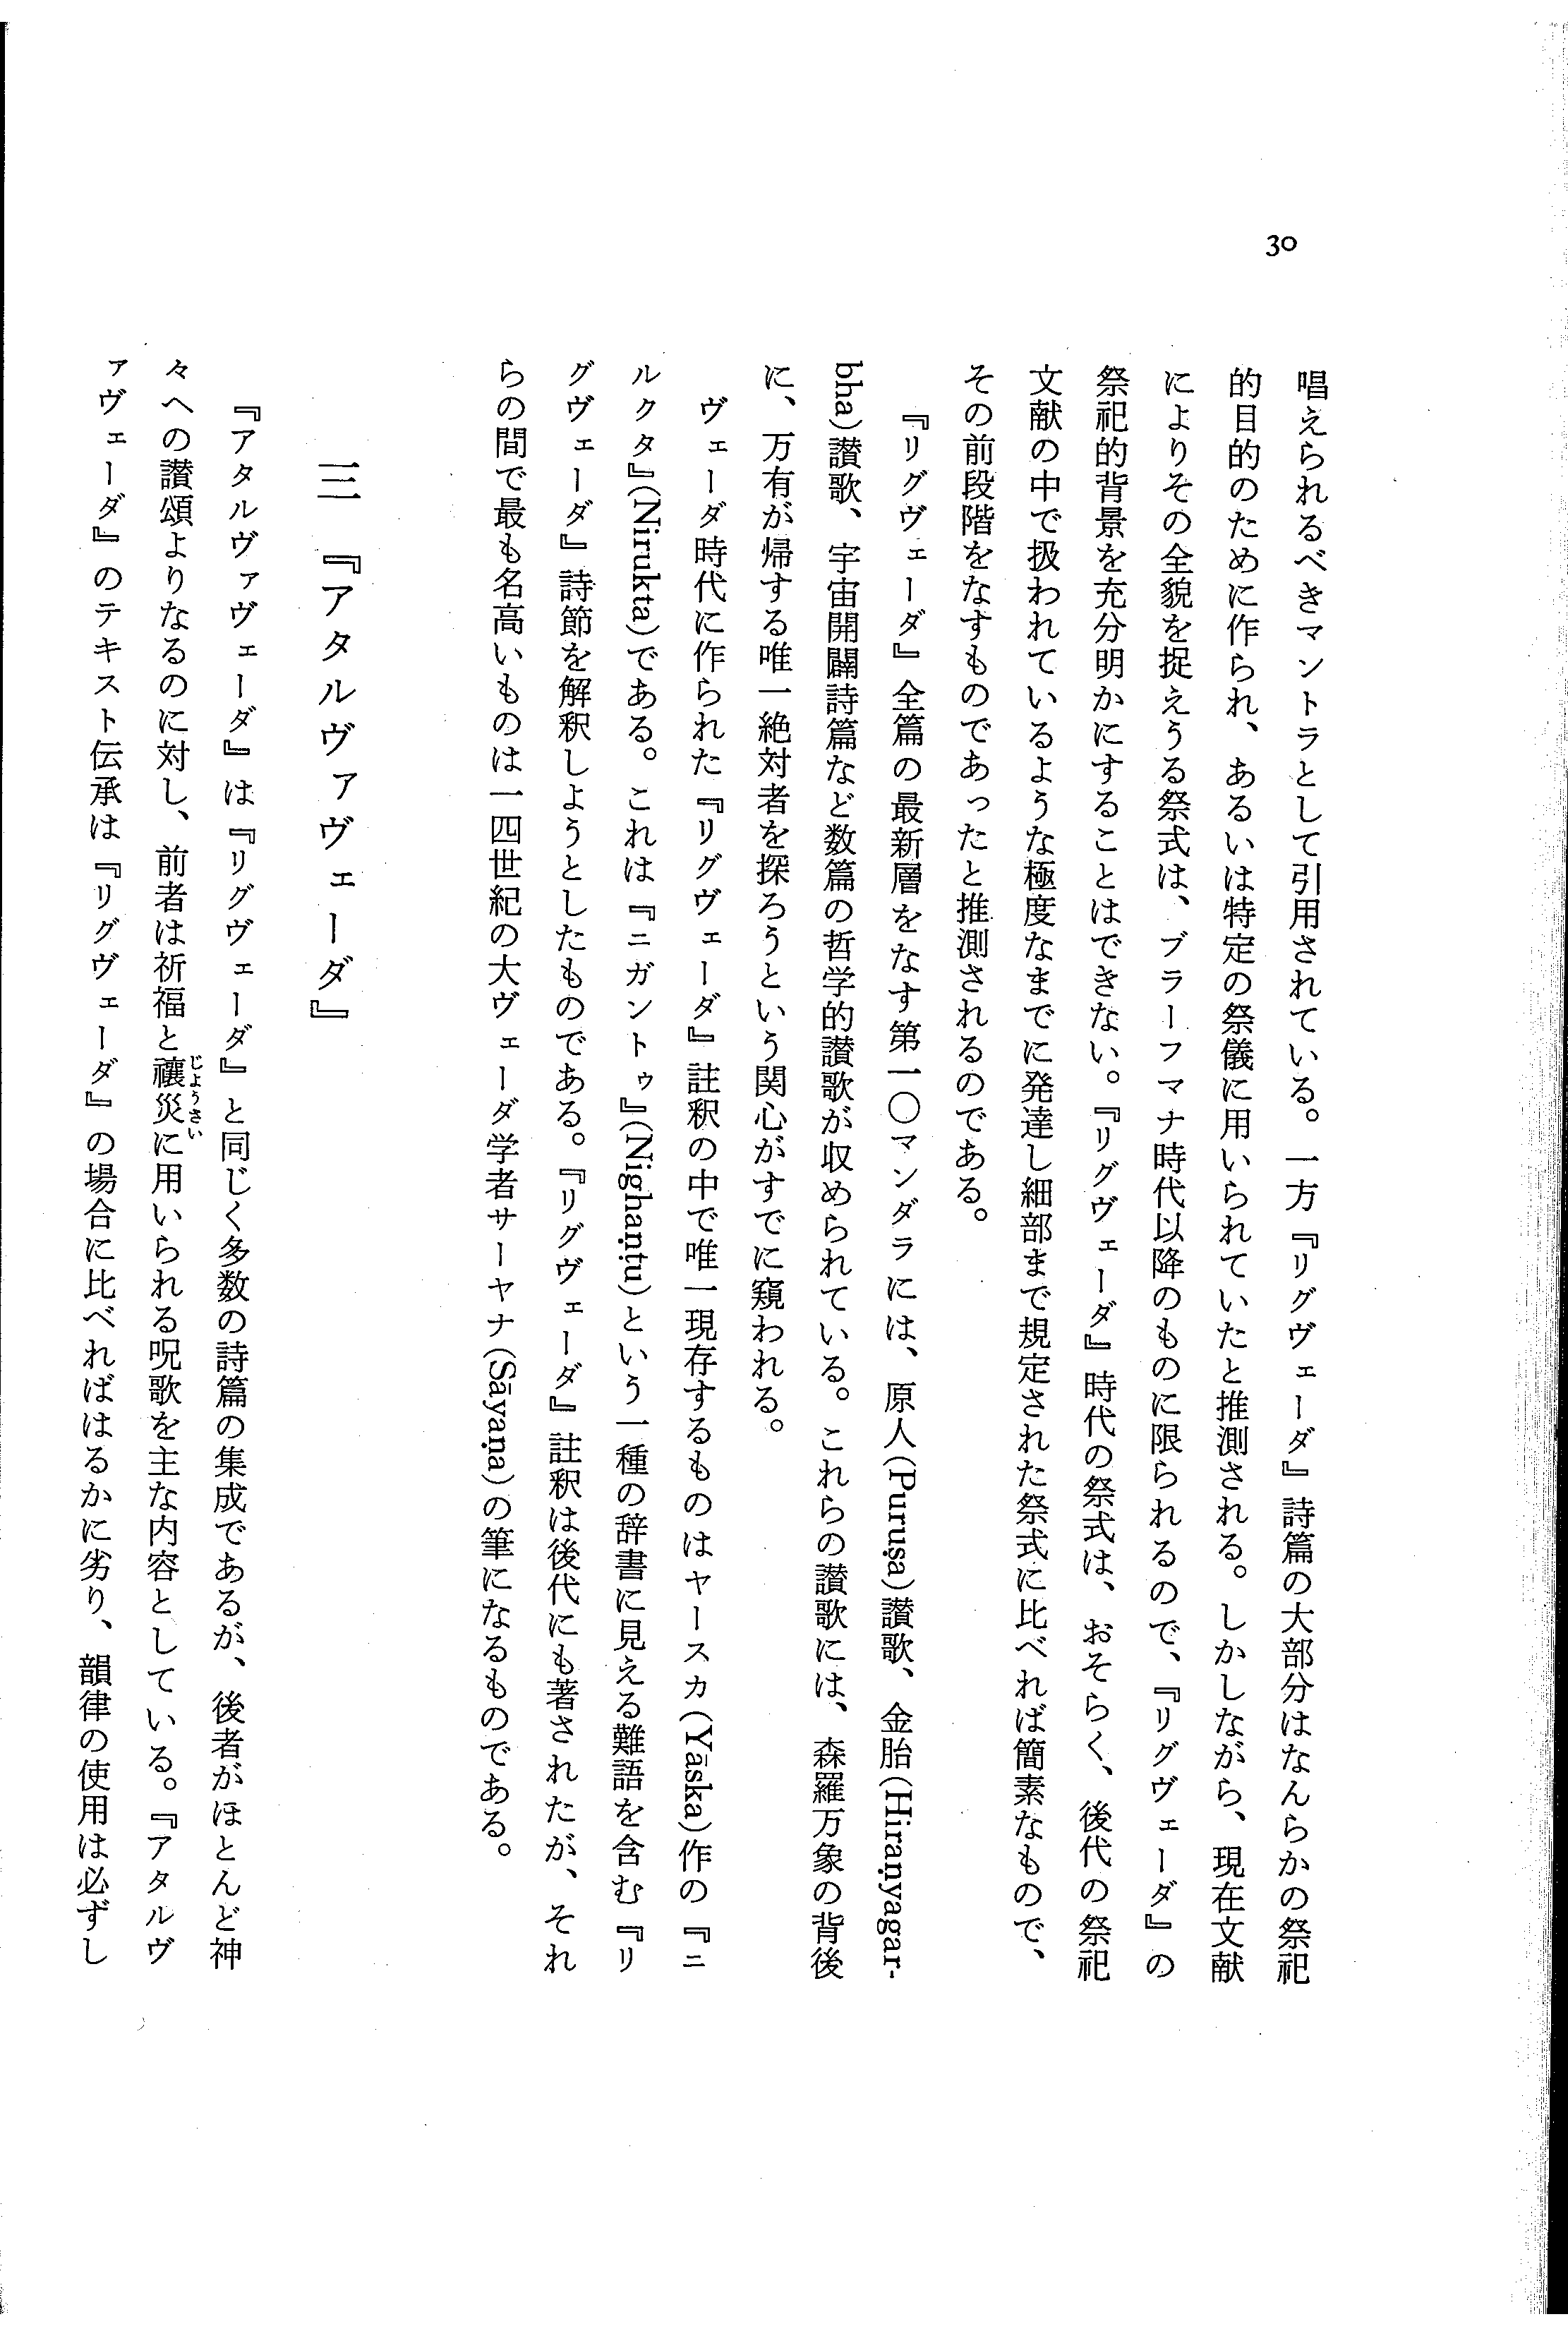 30
唱えられるべきマントラとして引用されている。一方『リグヴェーダ』詩篇の大部分はなんらかの祭祀
的目的のために作られ、あるいは特定の祭儀に用いられていたと推測される。しかしながら、現在文献
によりその全貌を捉えうる祭式は、ブラーフマナ時代以降のものに限られるので、『リグヴェーダ』の
祭祀的背景を充分明かにすることはできない。『リグヴェーダ』時代の祭式は、おそらく、後代の祭祀
文献の中で扱われているような極度なまでに発達し細部まで規定された祭式に比べれば簡素なもので、
その前段階をなすものであったと推測されるのである。
『リグヴェーダ』全篇の最新層をなす第一〇マンダラには、原人(Puruṣa)讃歌、金胎(Hiraṇyagar-
bha)讃歌、宇宙開闢詩篇など数篇の哲学的讃歌が収められている。これらの讃歌には、森羅万象の背後
に、万有が帰する唯一絶対者を探ろうという関心がすでに窺われる。
ヴェーダ時代に作られた『リグヴェーダ』註釈の中で唯一現存するものはヤースカ(Yāska)作の『ニ
ルクタ』(Nirukta)である。これは『ニガントゥ』(Nighaṇṭu)という一種の辞書に見える難語を含む『リ
グヴェーダ』詩節を解釈しようとしたものである。『リグヴェーダ』註釈は後代にも著されたが、それ
らの間で最も名高いものは一四世紀の大ヴェーダ学者サーヤナ(Sāyaṇa)の筆になるものである。
三 『アタルヴァヴェーダ』
『アタルヴァヴェーダ』は『リグヴェーダ』と同じく多数の詩篇の集成であるが、後者がほとんど神
々への讃頌よりなるのに対し、前者は祈福と禳災じょうさいに用いられる呪歌を主な内容としている。『アタルヴ
ァヴェーダ』のテキスト伝承は『リグヴェーダ』の場合に比べればはるかに劣り、韻律の使用は必ずし